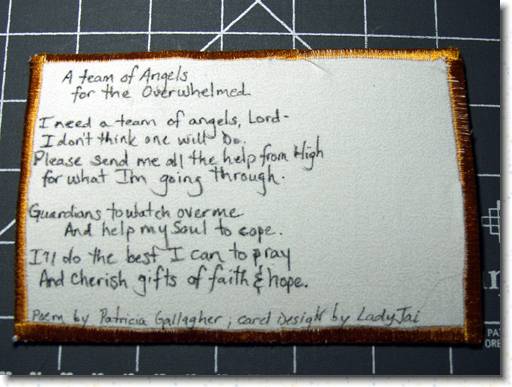 A team of Angels
for the Overwhelmed
I need a team of angels, Lord-
I don't think one will Do.
Please send me all the help from High
for what I'm going through.
Guardians to watch over me
And help my Soul to cope.
I'll do the best I can to pray
And Cherish gifts of faith & hope.
Poem by Patricia Gallagher; card Design by LadyJai